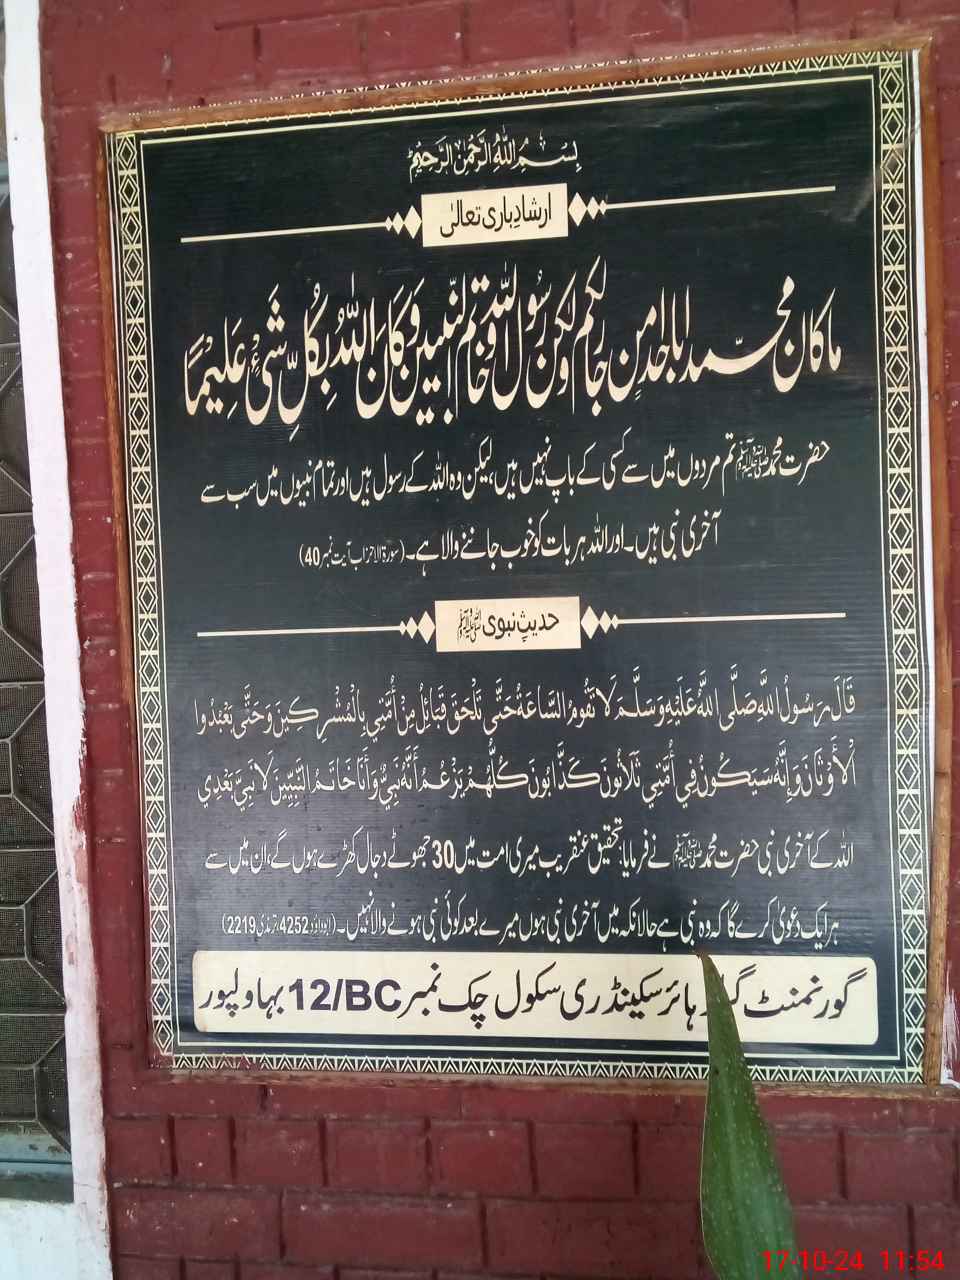 بِسْمِ اللّٰهِ الرَّحْمٰنِ الرَّحِيْمِ
ارشادِ باری تعالیٰ
ما كان محمد ابا احد من رجالكم ولكن رسول الله وخاتم النبيين وَكَانَ اللّٰهُ بِكُلِّ شَيْءٍ عَلِيْمًا
حضرت محمد ﷺ تم مردوں میں سے کسی کے باپ نہیں ہیں، لیکن وہ اللہ کے رسول ہیں اور تمام نبیوں میں سب سے
آخری نبی ہیں۔ اور اللہ ہر بات کو خوب جاننے والا ہے۔ (سورۃ الاحزاب آیت نمبر 40)
حدیثِ نبوی ﷺ
قَالَ رَسُولُ اللَّهِ صَلَّى اللَّهُ عَلَيْهِ وَسَلَّمَ لَا تَقُومُ السَّاعَةُ حَتَّى تَلْحَقَ قَبَائِلُ مِنْ أُمَّتِي بِالْمُشْرِكِينَ وَحَتَّى يَعْبُدُوا
الْأَوْثَانَ وَإِنَّهُ سَيَكُونُ فِي أُمَّتِي ثَلَاثُونَ كَذَّابُونَ كُلُّهُمْ يَزْعُمُ أَنَّهُ نَبِيٌّ وَأَنَا خَاتَمُ النَّبِيِّينَ لَا نَبِيَّ بَعْدِي
اللہ کے آخری نبی حضرت محمد ﷺ نے فرمایا: تحقیق عنقریب میری امت میں 30 جھوٹے دجال کھڑے ہوں گے، ان میں سے
ہر ایک دعویٰ کرے گا کہ وہ نبی ہے حالانکہ میں آخری نبی ہوں میرے بعد کوئی نبی ہونے والا نہیں۔ (ابوداؤد 4252، ترمذی 2219)
گورنمنٹ ہائر سکینڈری سکول چک نمبر 12/BC بہاولپور
17-10-24 11:54